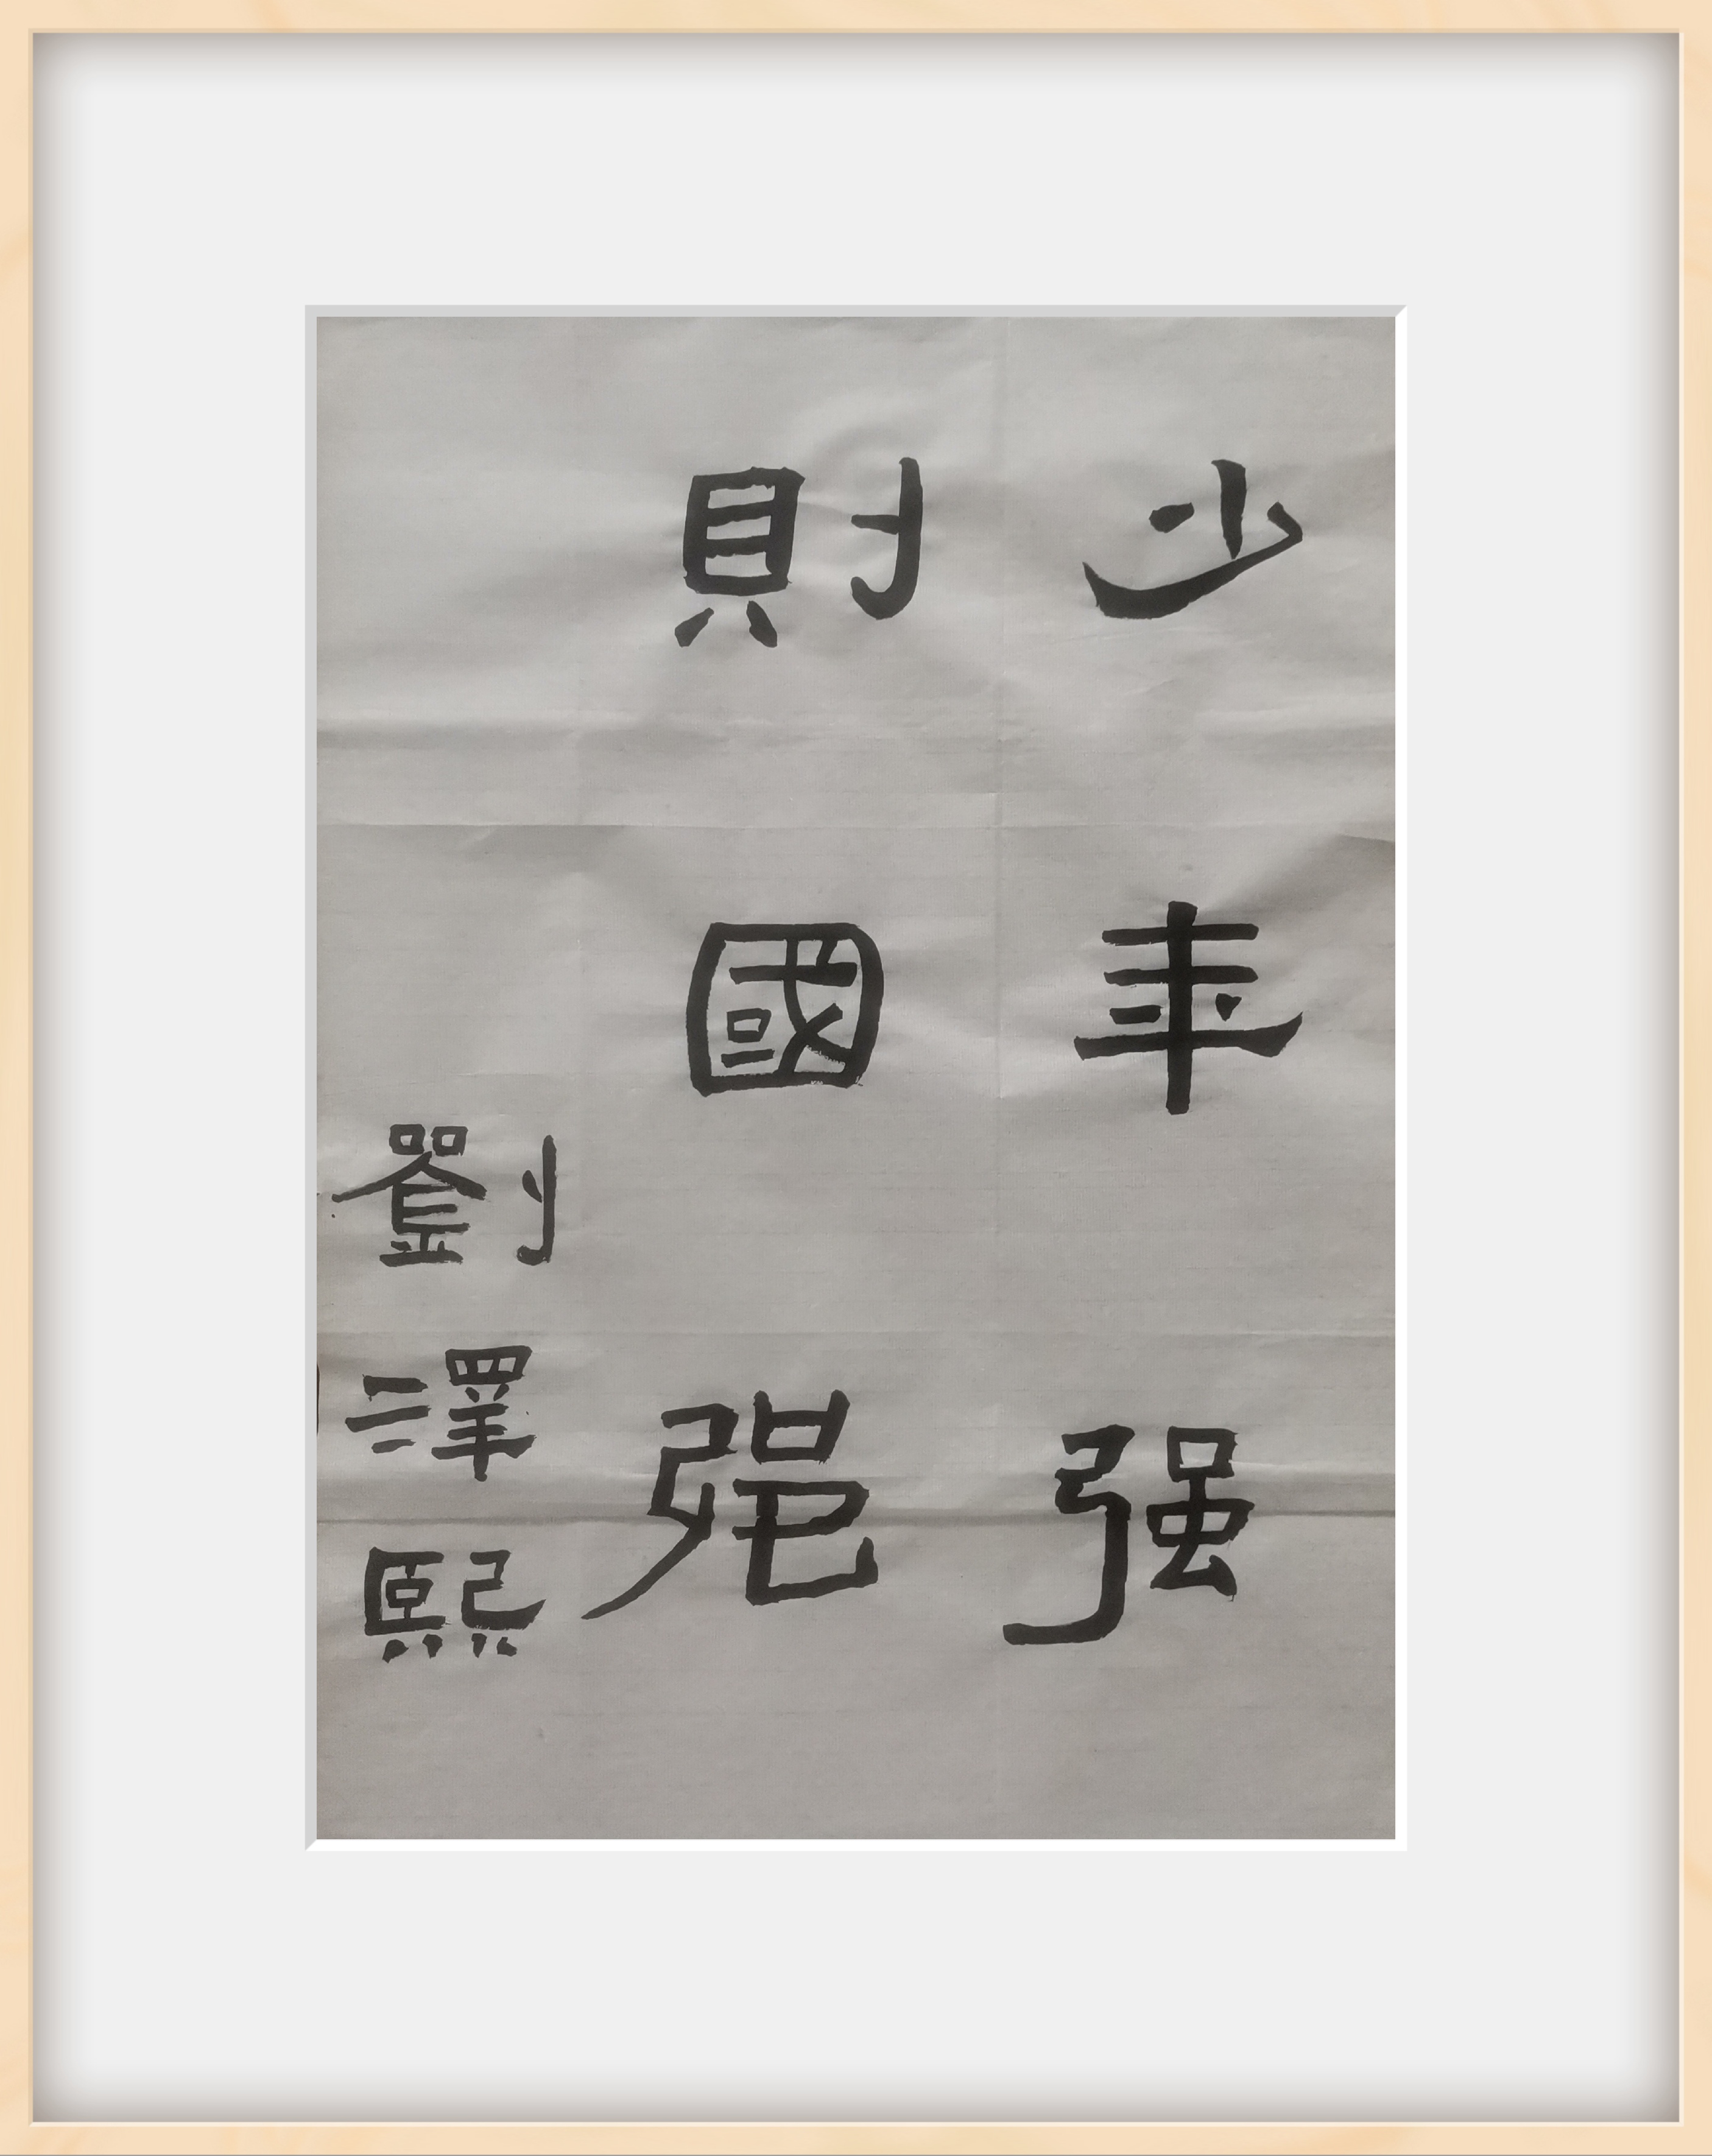 少年强
則國強
劉澤熙